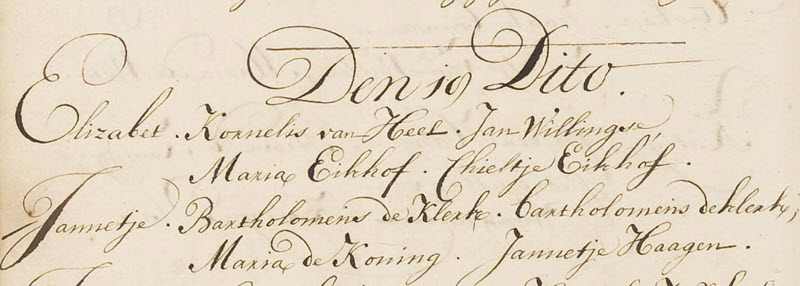 Den 19 Dito.
Elizabet. Kornelis van Heet. Jan Willingse,
Maria Eikhof. Chieltje Eikhof.
Jannetje. Bartholomeus de Klerk. bartholomeus de klerk,
Maria de Koning. Jannetje Haagen.